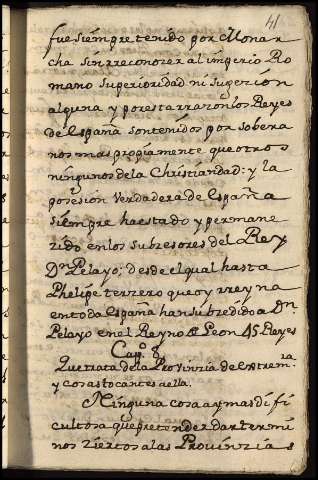 41
fue siempre tenido por Monar
cha sin rreconozer al imperio Ro
mano Superioridad ni sugezion
alguna y por esta rrazon los Reyes
de España son tenidos por sobera
nos mas propiamente que otros
ningunos de la Christiandad: y la
posesion verdadera de España
siempre ha estado y permane
zido en los subzesores del Rey
Dn Pelayo; desde el qual hasta
Phelipe terzero que oy rreyna
en toda España han subzedido a Dn
Pelayo en el Reyno de Leon 45. Reyes
Capo. 8
Que trata de la Provinzia de Extremra
y cosas tocantes a ella.
Ninguna cosa ay mas difi
cultosa que pretender dar termi
nos ziertos a las Provinzias